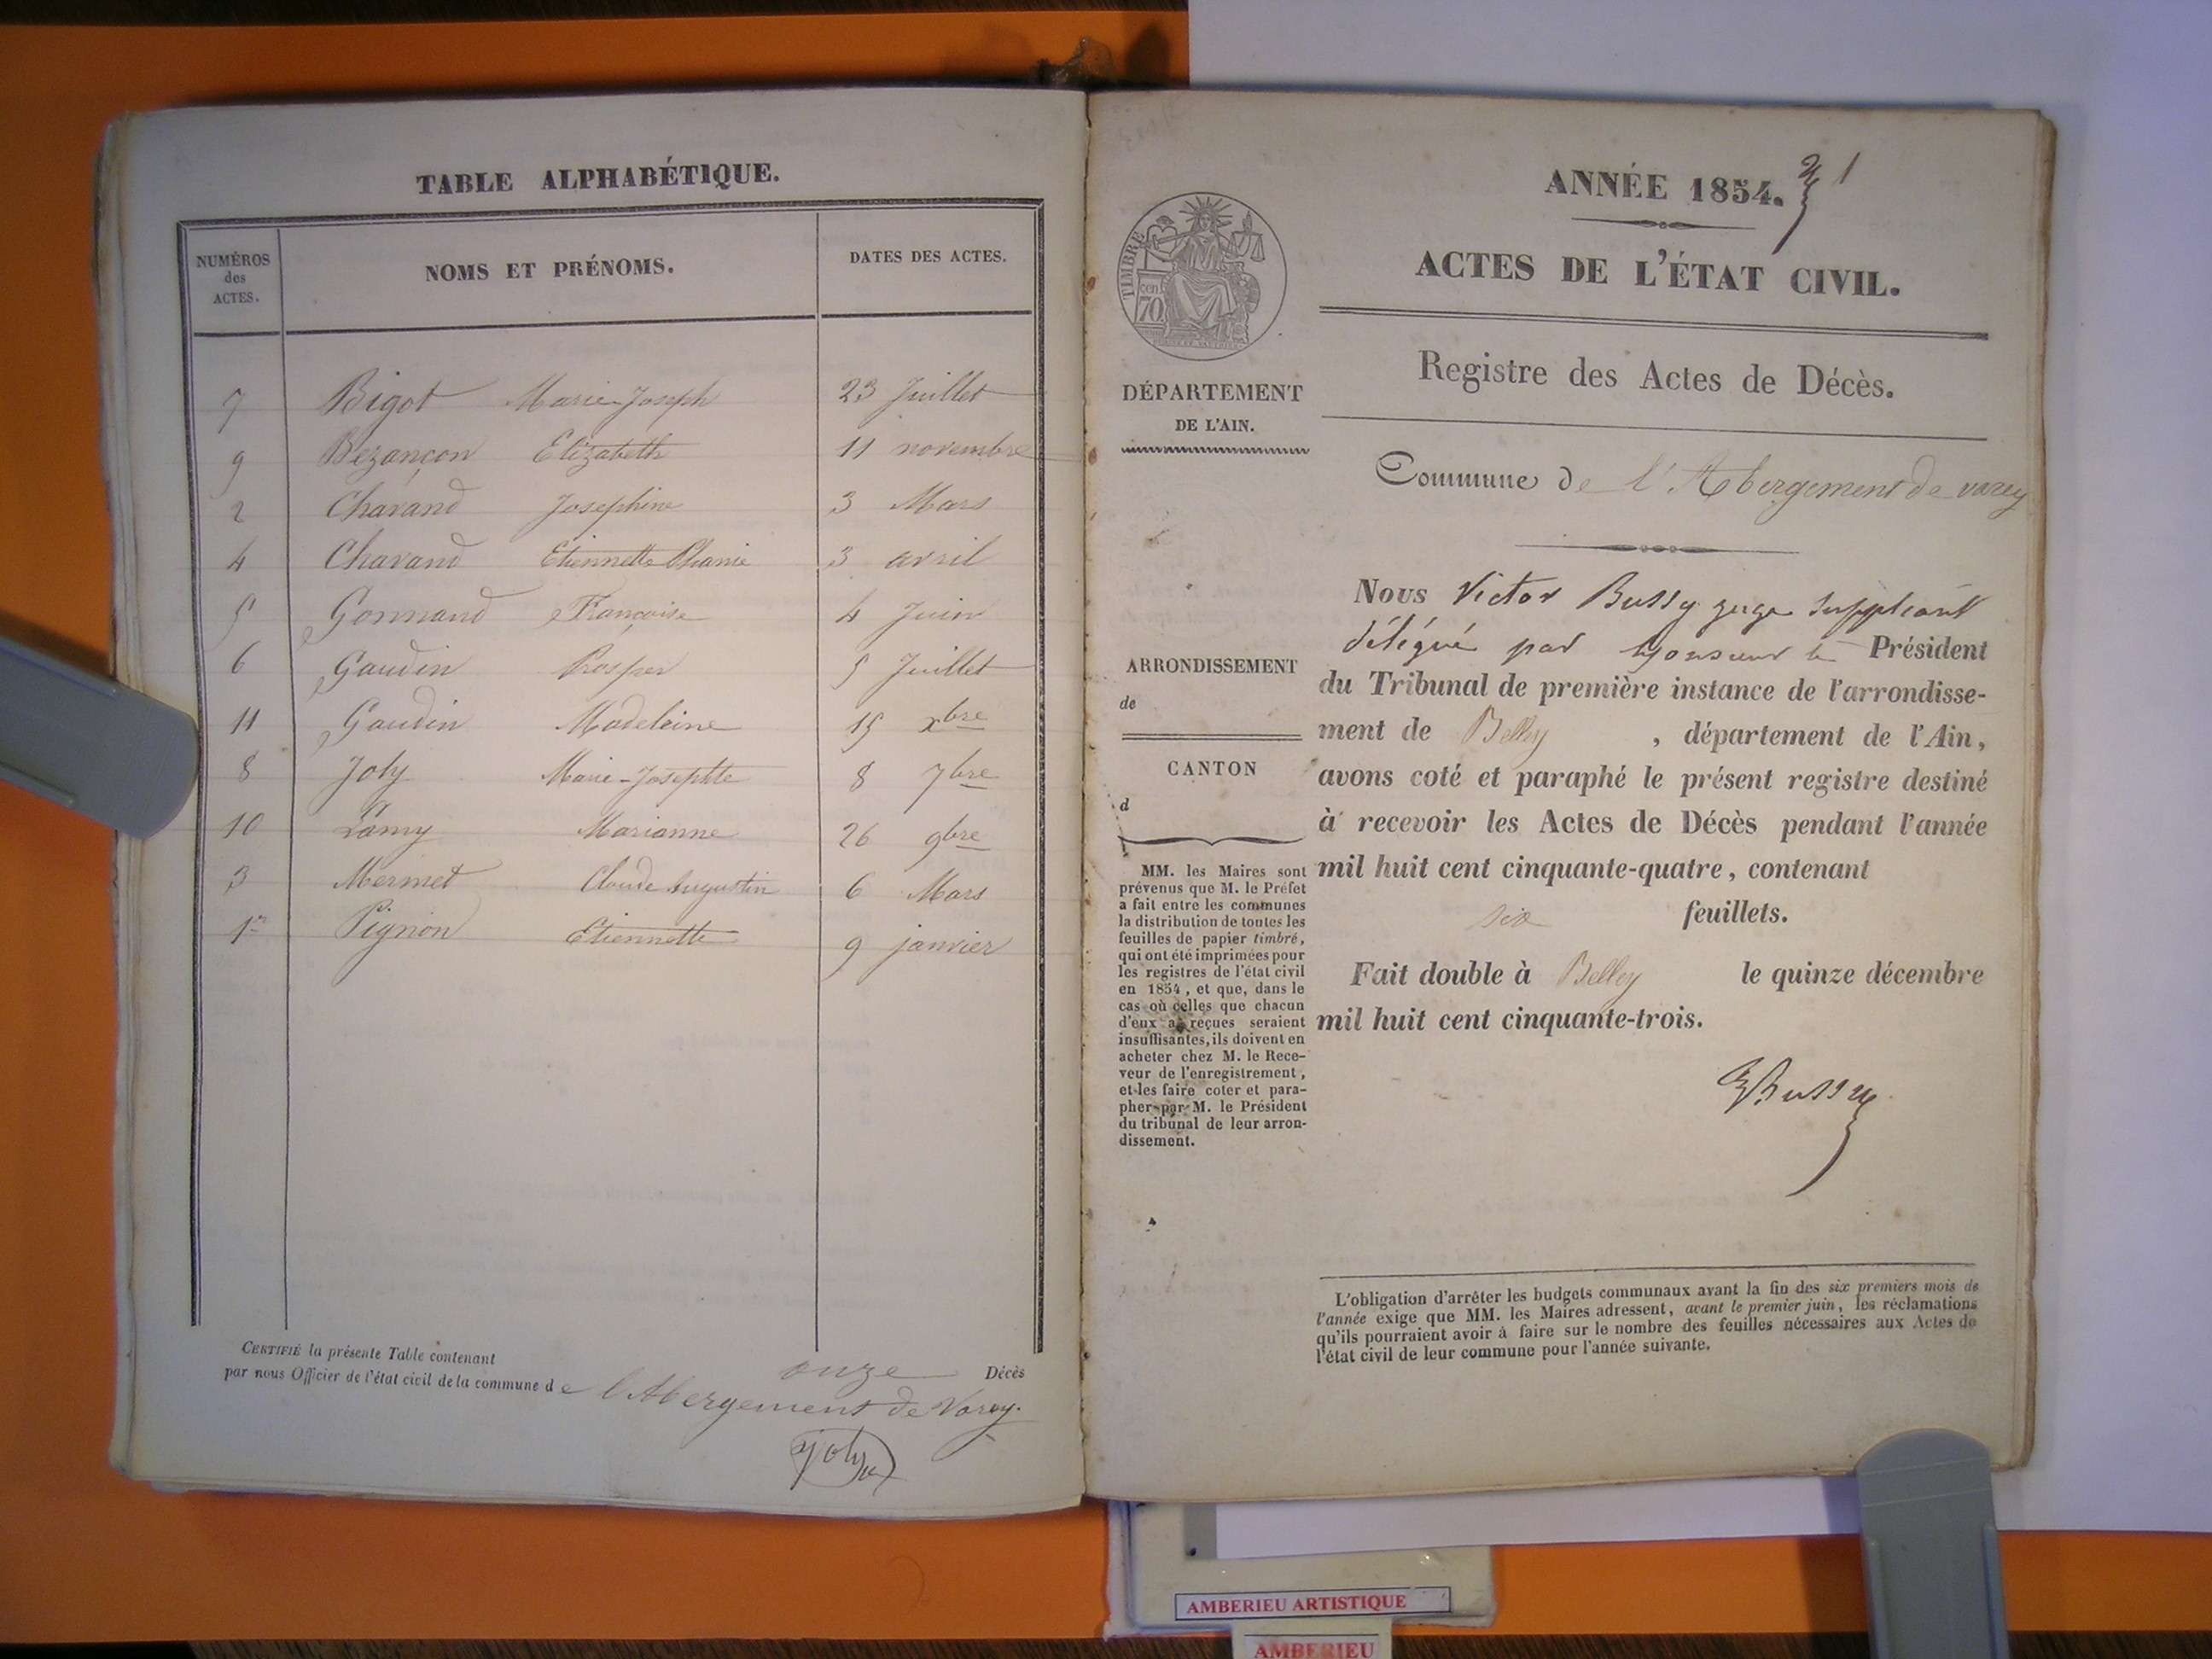 TABLE ALPHABÉTIQUE.
NUMÉROS des ACTES. NOMS ET PRÉNOMS. DATES DES ACTES.
7 Bigot Marie-Joseph 23 Juillet
9 Bezançon Elizabeth 11 novembre
2 Chavand Josephine 3 Mars
4 Chavand Etiennette 3 avril
5 Gonnand Françoise 4 Juin
6 Gaudin Prosper 5 Juillet
11 Gaudin Madeleine 15 xbre
8 Joly Marie-Josephte 8 7bre
10 Lamy Marianne 26 9bre
3 Mermet Claude Augustin 6 Mars
1er Pignon Etiennette 9 janvier
CERTIFIÉ la présente Table contenant onze Décès
par nous Officier de l'état civil de la commune de l'Abergement de Varey.
Joly
ANNÉE 1854.
1
ACTES DE L'ÉTAT CIVIL.
Registre des Actes de Décès.
Commune de l'Abergement de varey
TIMBRE
cen. 70
DÉPARTEMENT
DE L'AIN.
ARRONDISSEMENT
de
CANTON
d
MM. les Maires sont
prévenus que M. le Préfet
a fait entre les communes
la distribution de toutes les
feuilles de papier timbré,
qui ont été imprimées pour
les registres de l'état civil
en 1854, et que, dans le
cas où celles que chacun
d'eux a reçues seraient
insuffisantes, ils doivent en
acheter chez M. le Rece-
veur de l'enregistrement,
et les faire coter et para-
pher par M. le Président
du tribunal de leur arron-
dissement.
Nous Victor Bussy juge suppléant
délégué par Monsieur le Président
du Tribunal de première instance de l'arrondisse-
ment de Belley, département de l'Ain,
avons coté et paraphé le présent registre destiné
à recevoir les Actes de Décès pendant l'année
mil huit cent cinquante-quatre, contenant
six feuillets.
Fait double à Belley le quinze décembre
mil huit cent cinquante-trois.
Bussy
L'obligation d'arrêter les budgets communaux avant la fin des six premiers mois de
l'année exige que MM. les Maires adressent, avant le premier juin, les réclamations
qu'ils pourraient avoir à faire sur le nombre des feuilles nécessaires aux Actes de
l'état civil de leur commune pour l'année suivante.
AMBERIEU ARTISTIQUE
AMBERIEU